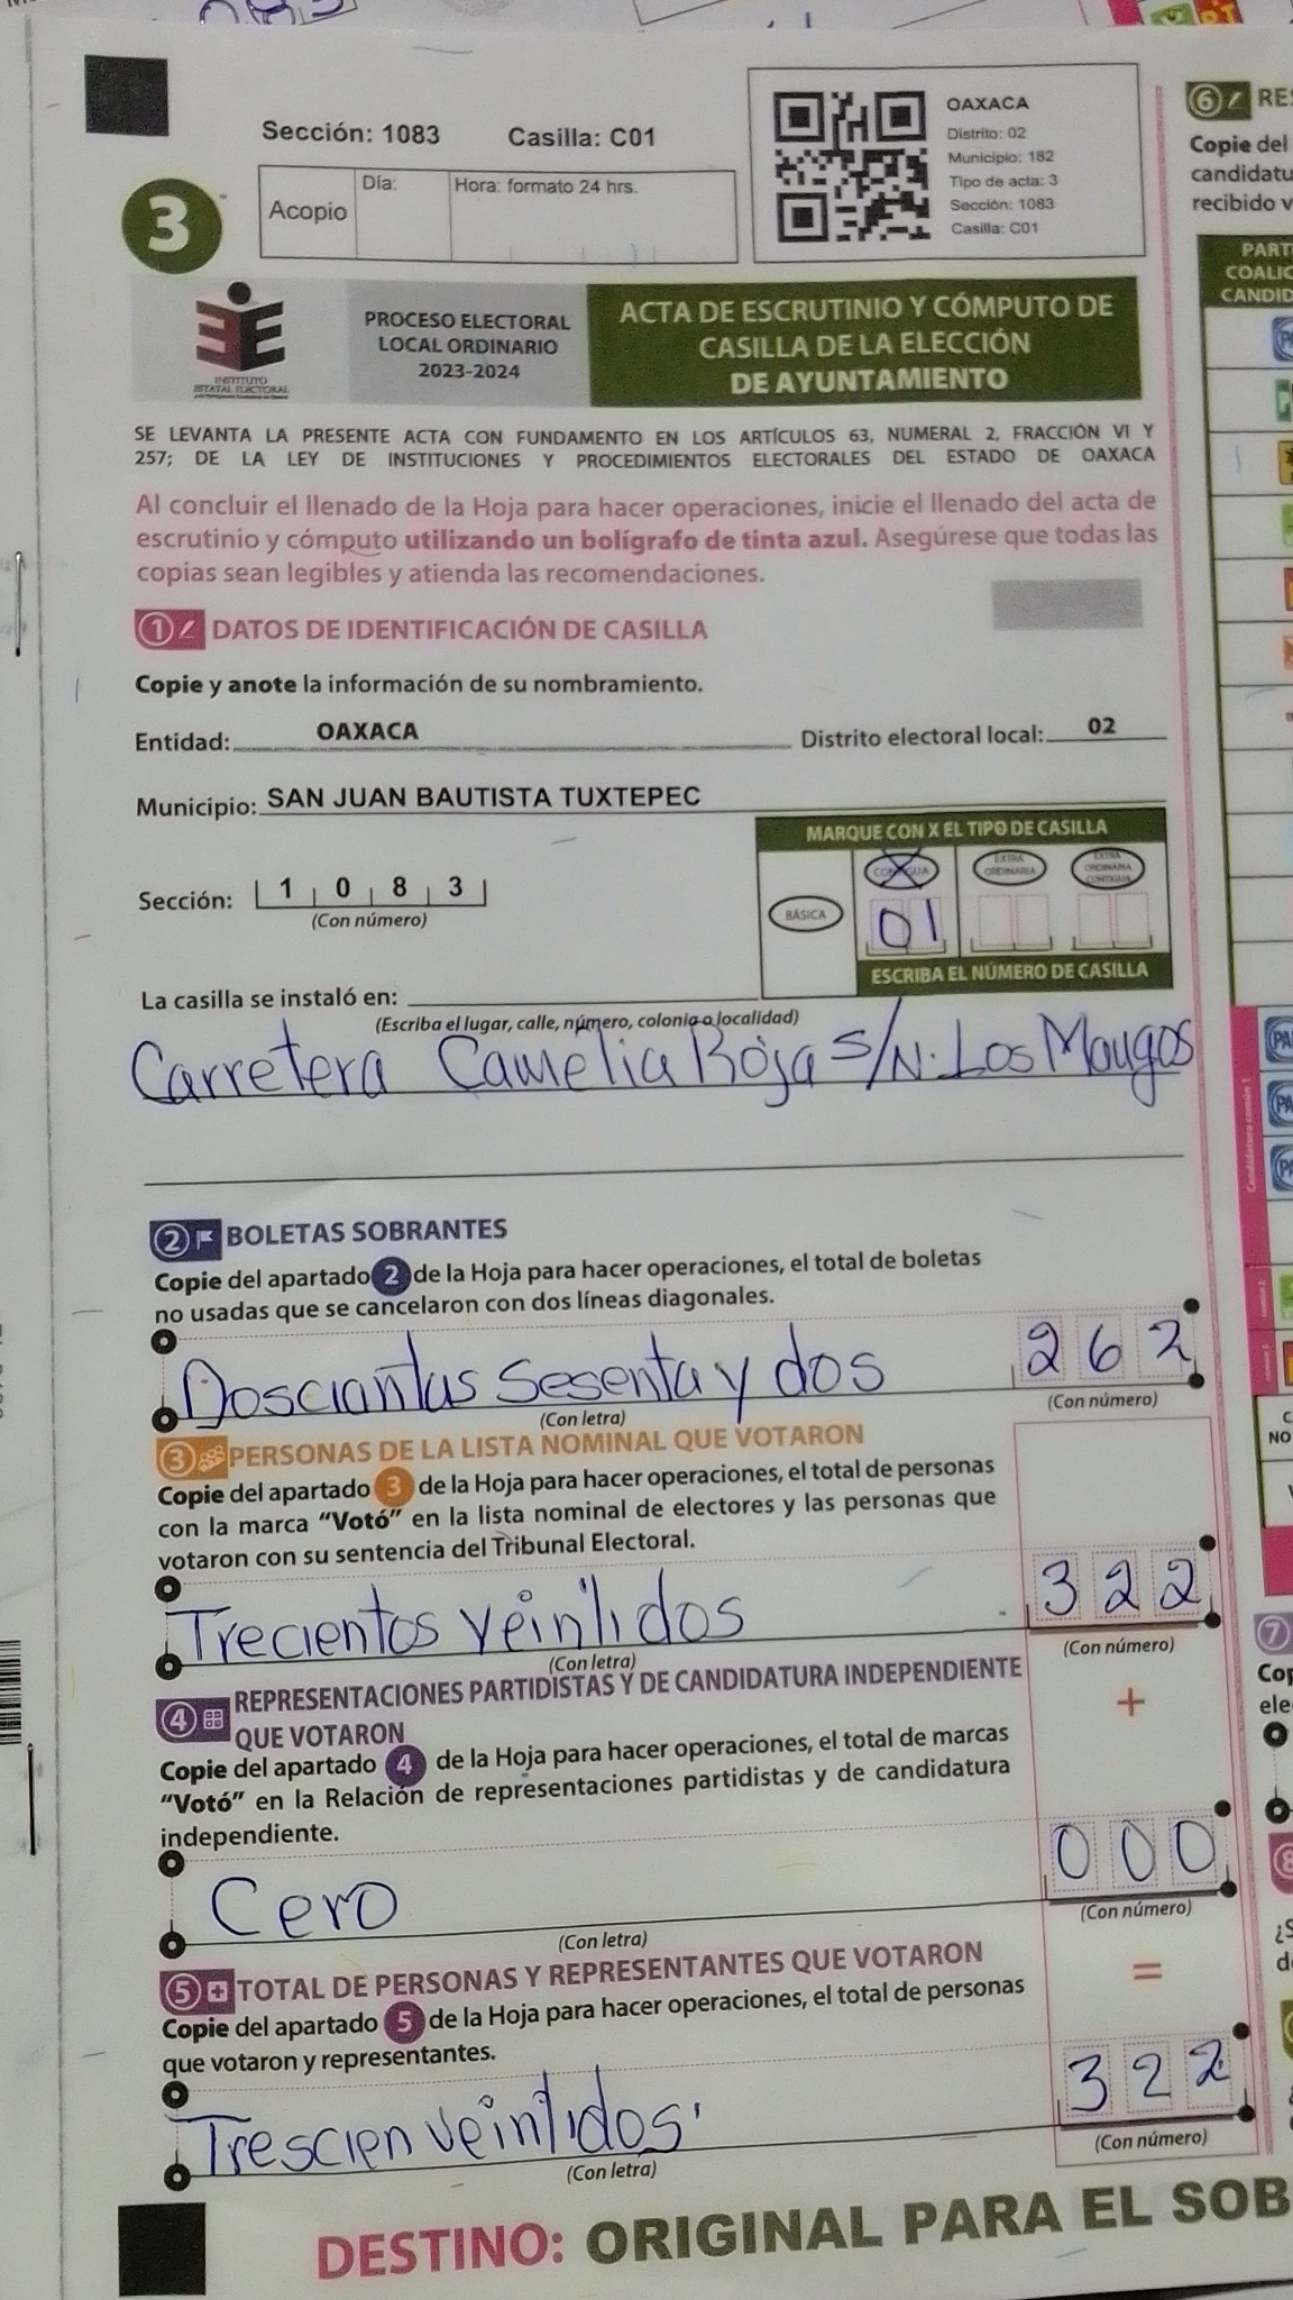 Sección: 1083 Casilla: C01
Acopio Día: Hora: formato 24 hrs.
3
OAXACA
Distrito: 02
Municipio: 182
Tipo de acta: 3
Sección: 1083
Casilla: C01
INSTITUTO
ESTATAL ELECTORAL
PROCESO ELECTORAL
LOCAL ORDINARIO
2023-2024
ACTA DE ESCRUTINIO Y CÓMPUTO DE
CASILLA DE LA ELECCIÓN
DE AYUNTAMIENTO
SE LEVANTA LA PRESENTE ACTA CON FUNDAMENTO EN LOS ARTÍCULOS 63, NUMERAL 2, FRACCIÓN VI Y
257; DE LA LEY DE INSTITUCIONES Y PROCEDIMIENTOS ELECTORALES DEL ESTADO DE OAXACA
Al concluir el llenado de la Hoja para hacer operaciones, inicie el llenado del acta de
escrutinio y cómputo utilizando un bolígrafo de tinta azul. Asegúrese que todas las
copias sean legibles y atienda las recomendaciones.
1 DATOS DE IDENTIFICACIÓN DE CASILLA
Copie y anote la información de su nombramiento.
Entidad: OAXACA Distrito electoral local: 02
Municipio: SAN JUAN BAUTISTA TUXTEPEC
MARQUE CON X EL TIPO DE CASILLA
BÁSICA
CONTIGUA
EXTRA
ORDINARIA
EXTRA
ORDINARIA
CONTIGUA
01
ESCRIBA EL NÚMERO DE CASILLA
Sección: 1 0 8 3
(Con número)
La casilla se instaló en:
(Escriba el lugar, calle, número, colonia o localidad)
Carretera Camelia Roja S/N. Los Mangos
2 BOLETAS SOBRANTES
Copie del apartado 2 de la Hoja para hacer operaciones, el total de boletas
no usadas que se cancelaron con dos líneas diagonales.
Dosciantas Sesenta y dos 262
(Con letra) (Con número)
3 PERSONAS DE LA LISTA NOMINAL QUE VOTARON
Copie del apartado 3 de la Hoja para hacer operaciones, el total de personas
con la marca “Votó” en la lista nominal de electores y las personas que
votaron con su sentencia del Tribunal Electoral.
Trecientos veintidos 322
(Con letra) (Con número)
4 REPRESENTACIONES PARTIDISTAS Y DE CANDIDATURA INDEPENDIENTE
QUE VOTARON
+
Copie del apartado 4 de la Hoja para hacer operaciones, el total de marcas
“Votó” en la Relación de representaciones partidistas y de candidatura
independiente.
Cero 000
(Con letra) (Con número)
5 TOTAL DE PERSONAS Y REPRESENTANTES QUE VOTARON
=
Copie del apartado 5 de la Hoja para hacer operaciones, el total de personas
que votaron y representantes.
Trescien veintidos. 322
(Con letra) (Con número)
DESTINO: ORIGINAL PARA EL SOB
6 RES
Copie del
candidatu
recibido v
PART
COALIC
CANDID
Candidatura común 1
NO
7
Cop
ele
8